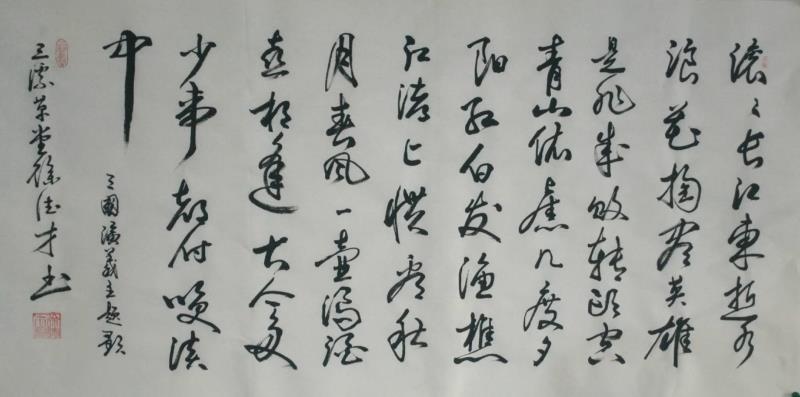 滚〻长江東逝水
浪花掏尽英雄
是非成败转头空
青山依舊几度夕
阳红白发渔樵
江渚上惯看秋
月春风一壶浊酒
喜相逢古今多
少事都付笑谈
中
三國演義主题歌
草堂徐德才书